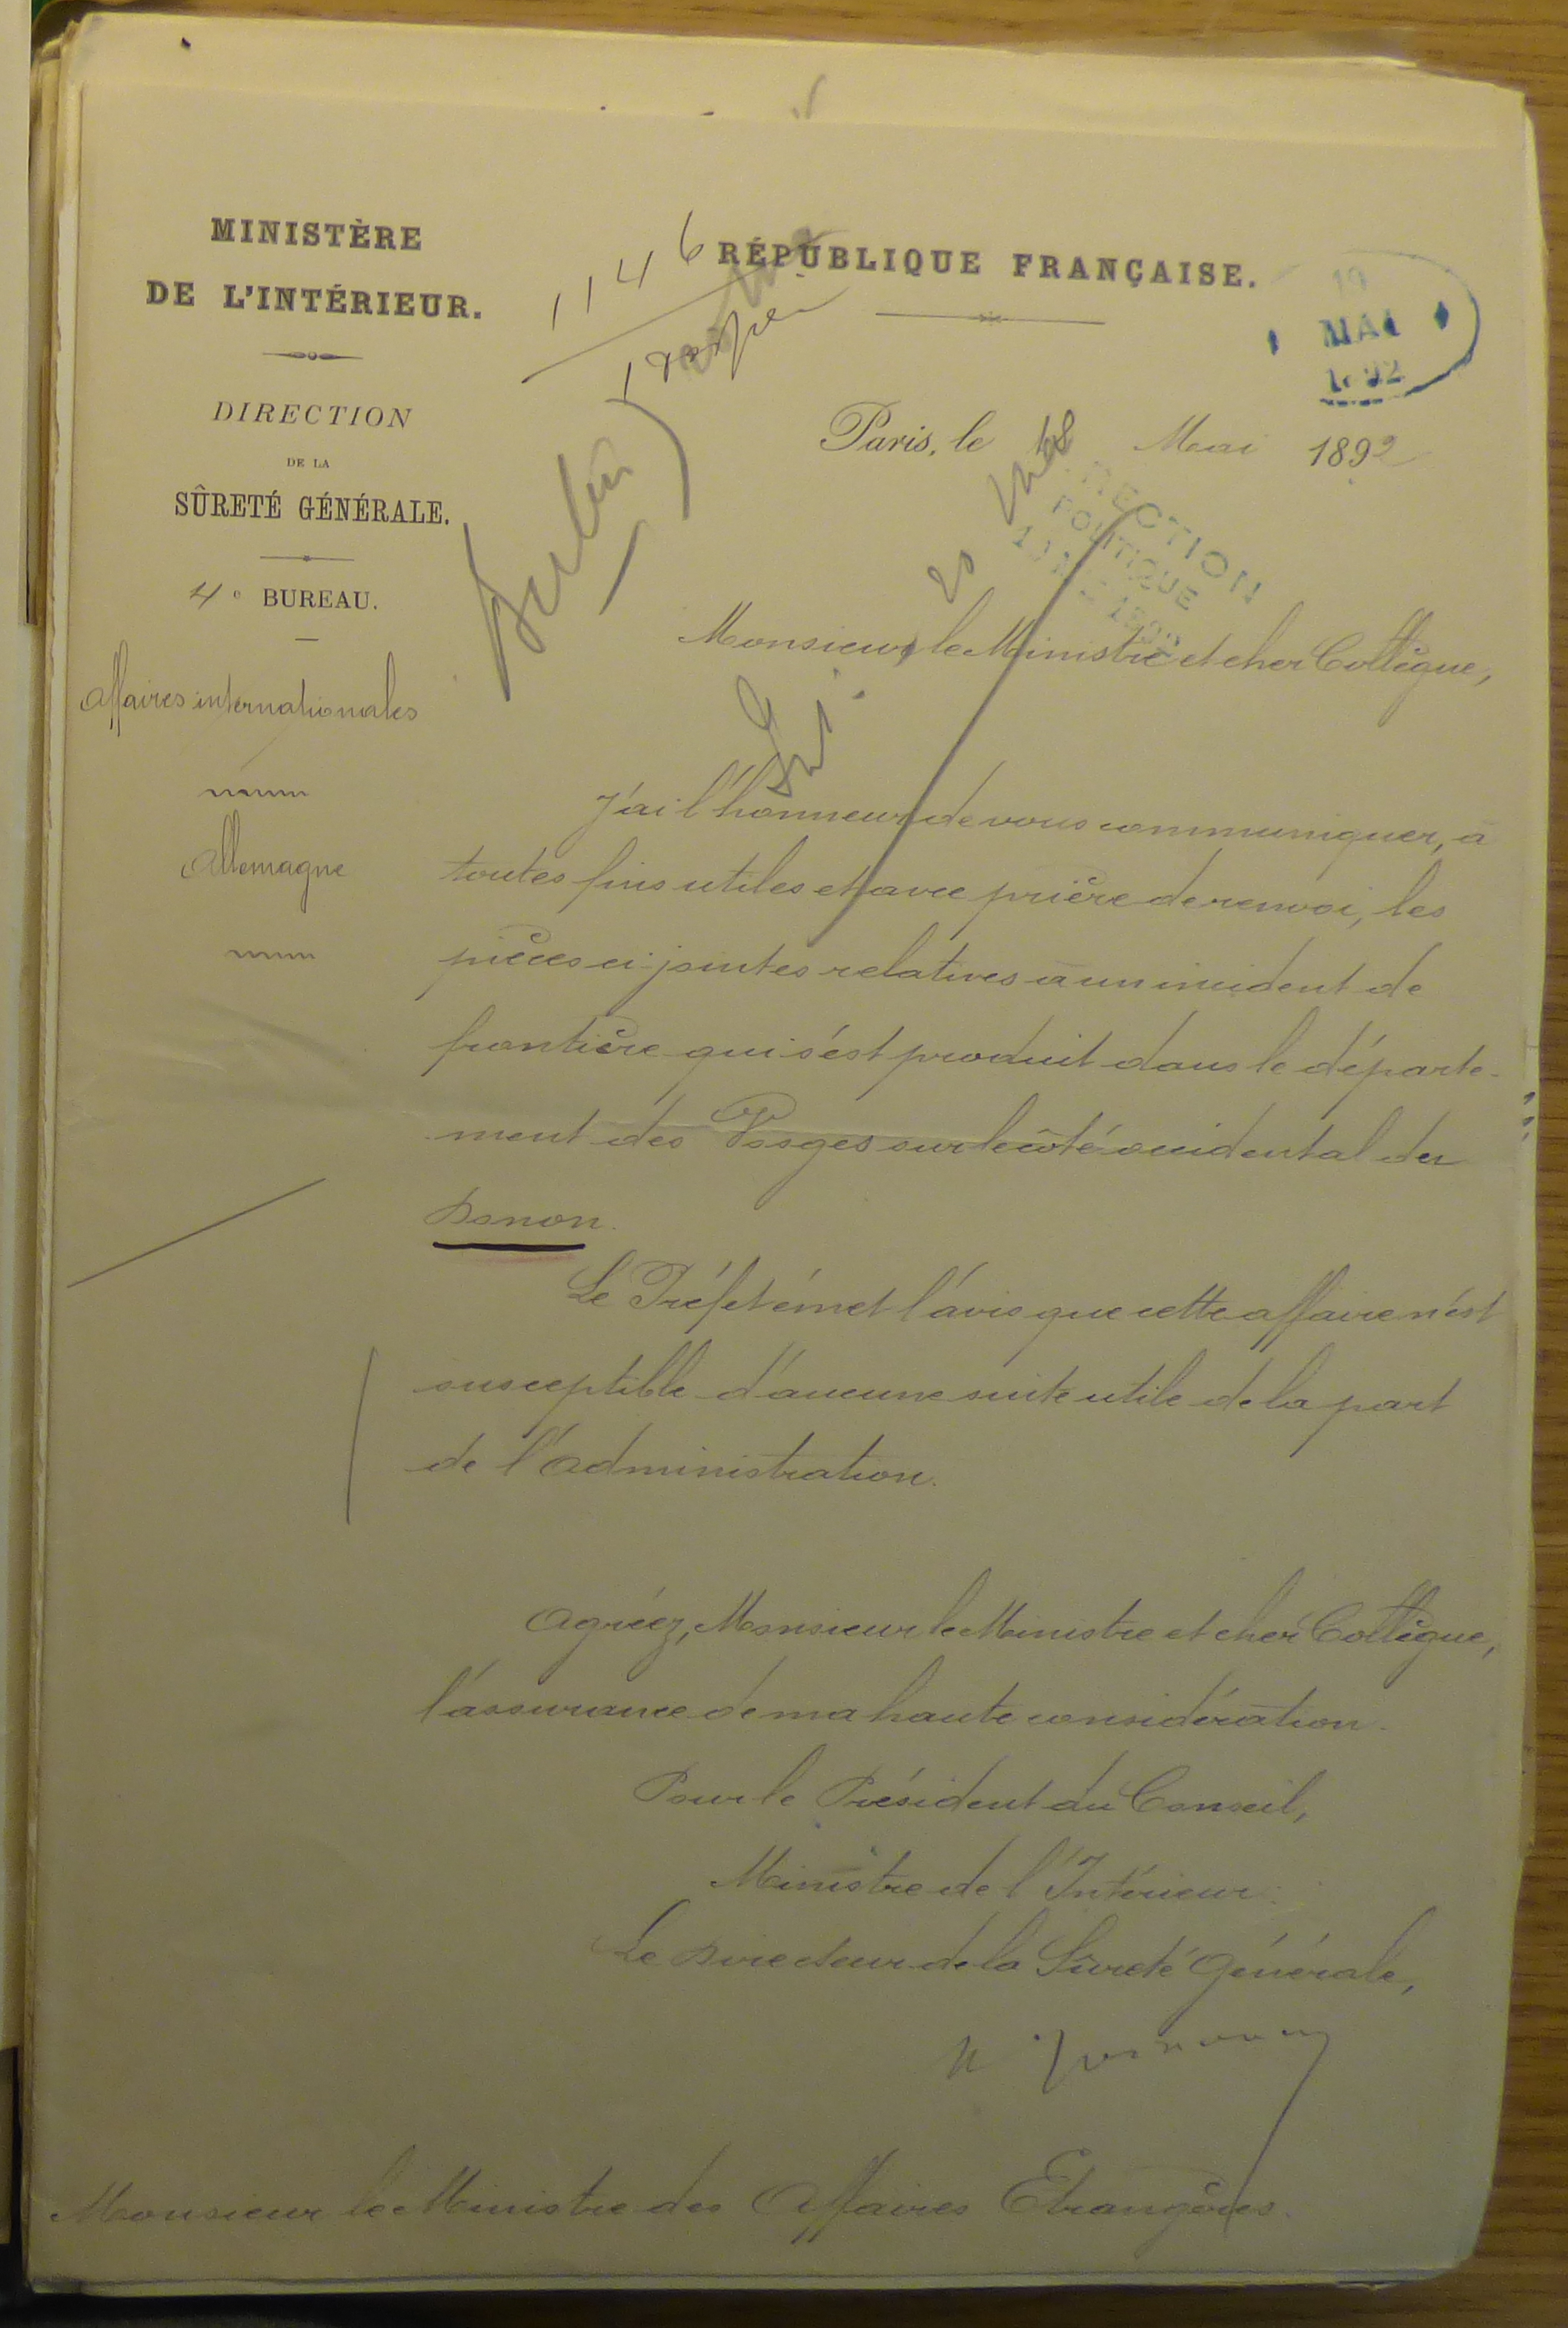 MINISTÈRE
DE L'INTÉRIEUR.
DIRECTION
DE LA
SÛRETÉ GÉNÉRALE.
4e BUREAU.
Affaires internationales
Allemagne
1146
RÉPUBLIQUE FRANÇAISE.
19
MAI
1892
Berlin
Paris, le 18 Mai 1892
DIRECTION
POLITIQUE
Monsieur le Ministre et cher Collègue,
J'ai l'honneur de vous communiquer, à
toutes fins utiles et avec prière de renvoi, les
pièces ci-jointes relatives à un incident de
frontière qui s'est produit dans le départe-
ment des Vosges sur le côté occidental du
Donon.
Le Préfet émet l'avis que cette affaire n'est
susceptible d'aucune suite utile de la part
de l'administration.
Agréez, Monsieur le Ministre et cher Collègue,
l'assurance de ma haute considération.
Pour le Président du Conseil,
Ministre de l'Intérieur:
Le Directeur de la Sûreté Générale,
Monsieur le Ministre des Affaires Etrangères.